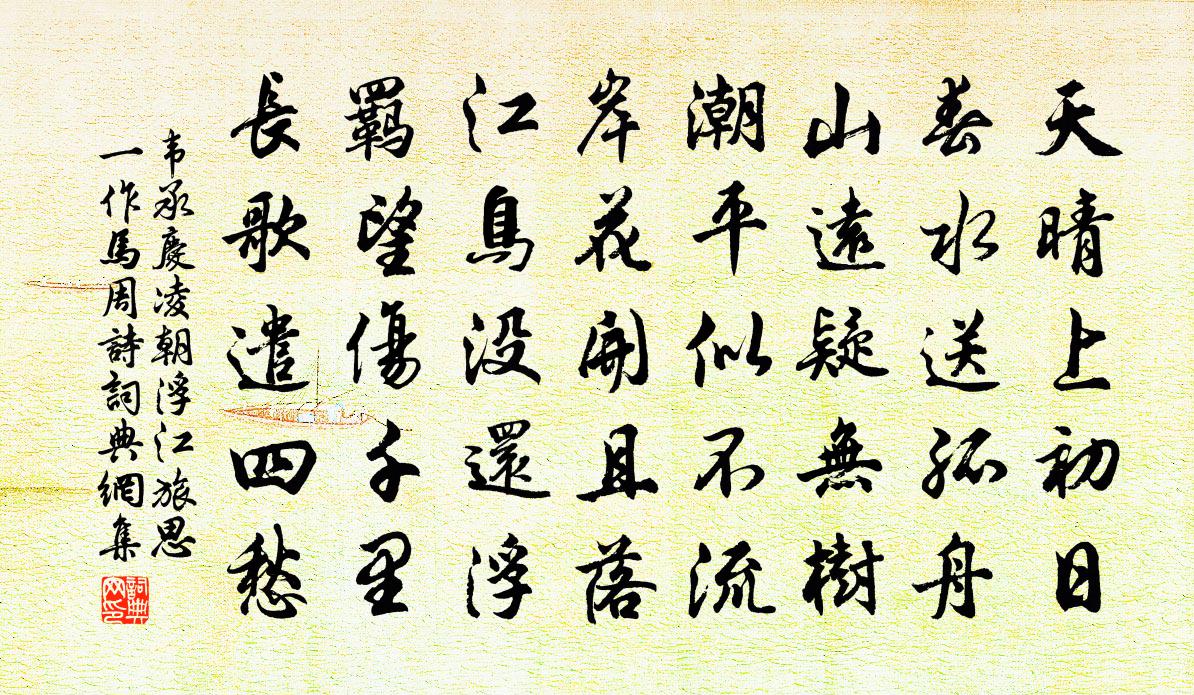 天晴上初日
春水送孤舟
山遠疑無樹
潮平似不流
岸花開且落
江鳥没還浮
羈望傷千里
長歌遣四愁
韦承慶凌朝浮江旅思
一作馬周詩詞典網集
詞典网印